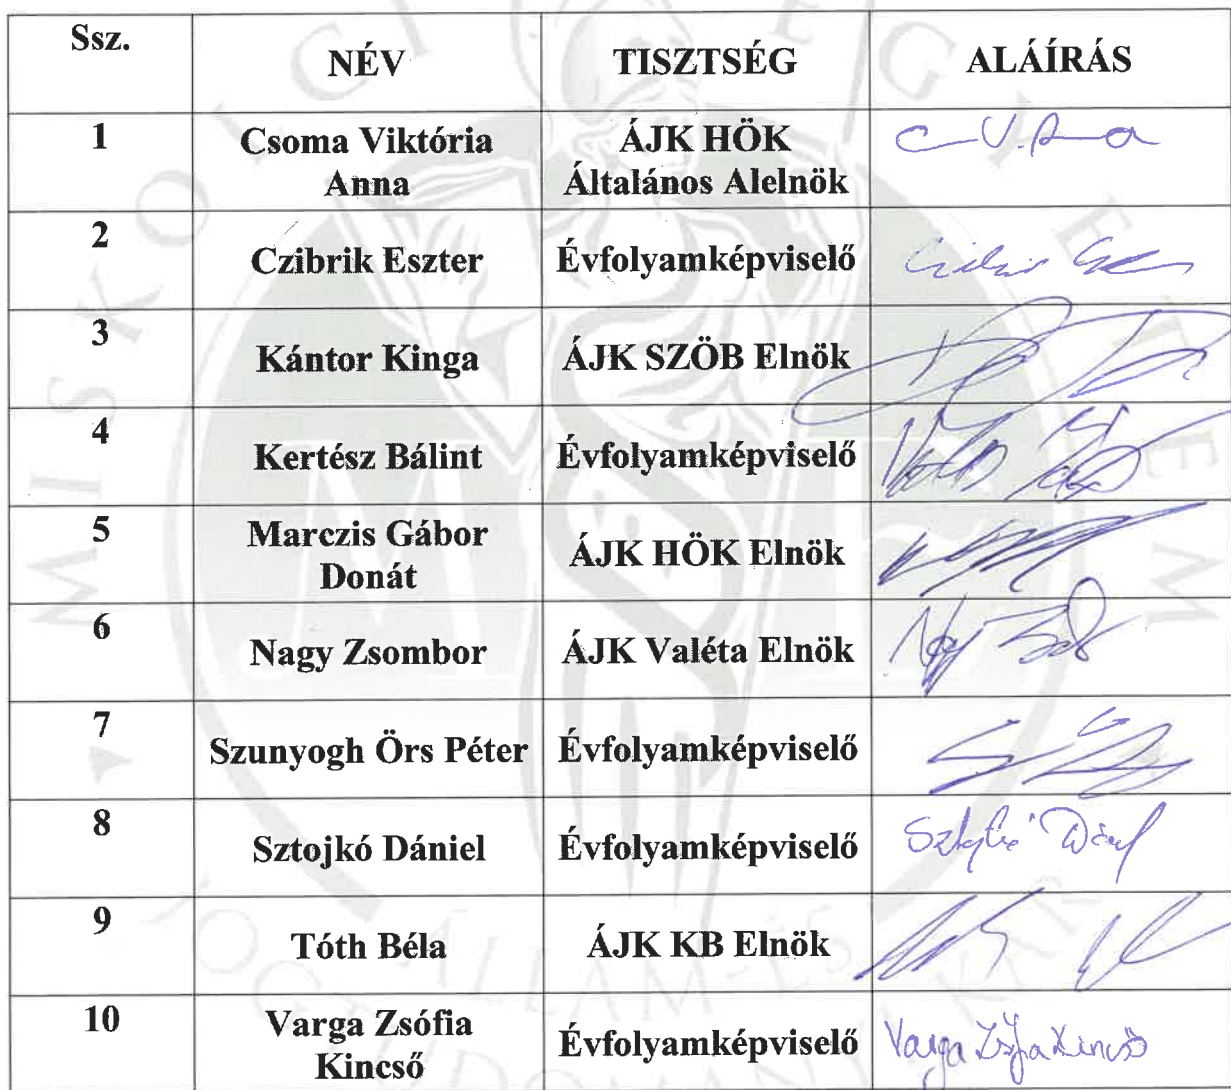 Ssz.
NÉV
TISZTSÉG
ALÁÍRÁS
1
Csoma Viktória
Anna
ÁJK HÖK
Általános Alelnök
2
Czibrik Eszter
Évfolyamképviselő
3
Kántor Kinga
ÁJK SZÖB Elnök
4
Kertész Bálint
Évfolyamképviselő
5
Marczis Gábor
Donát
ÁJK HÖK Elnök
6
Nagy Zsombor
ÁJK Valéta Elnök
7
Szunyogh Örs Péter
Évfolyamképviselő
8
Sztojkó Dániel
Évfolyamképviselő
9
Tóth Béla
ÁJK KB Elnök
10
Varga Zsófia
Kincső
Évfolyamképviselő
Varga Zsófia Kincső
MISKOLCI EGYETEM
ÁLLAM- ÉS
JOGTUDOMÁNYI KAR